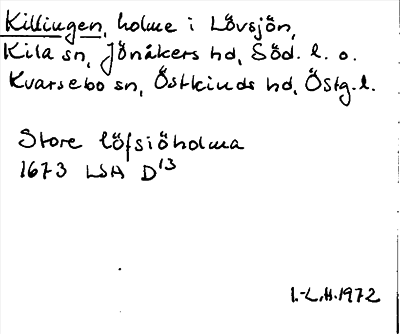 Killingen, holme i Lövsjön,
Kila sn, Jönåkers hd, Söd. l. o.
Kvarsebo sn, Östkinds hd, Östg. l.
Store löfsiöholma
1673 LSA D13
I.-L.H. 1972